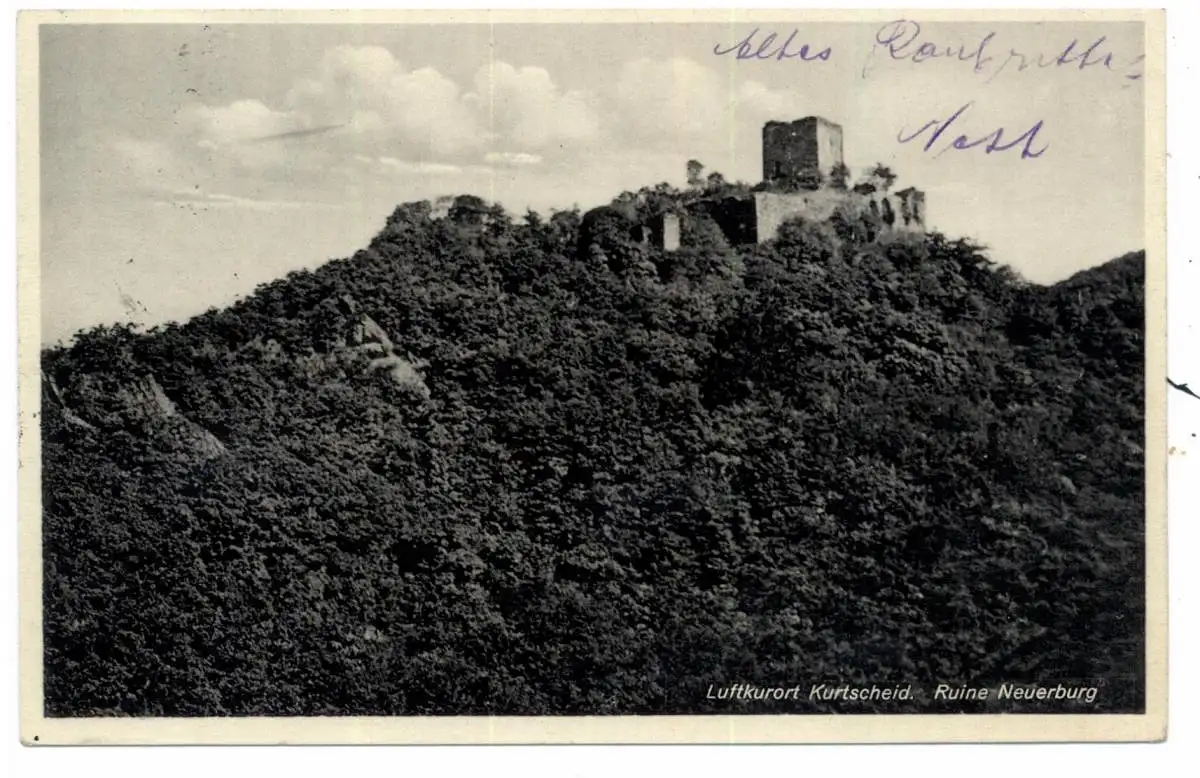 Altes Raubritter=
Nest
Luftkurort Kurtscheid. Ruine Neuerburg